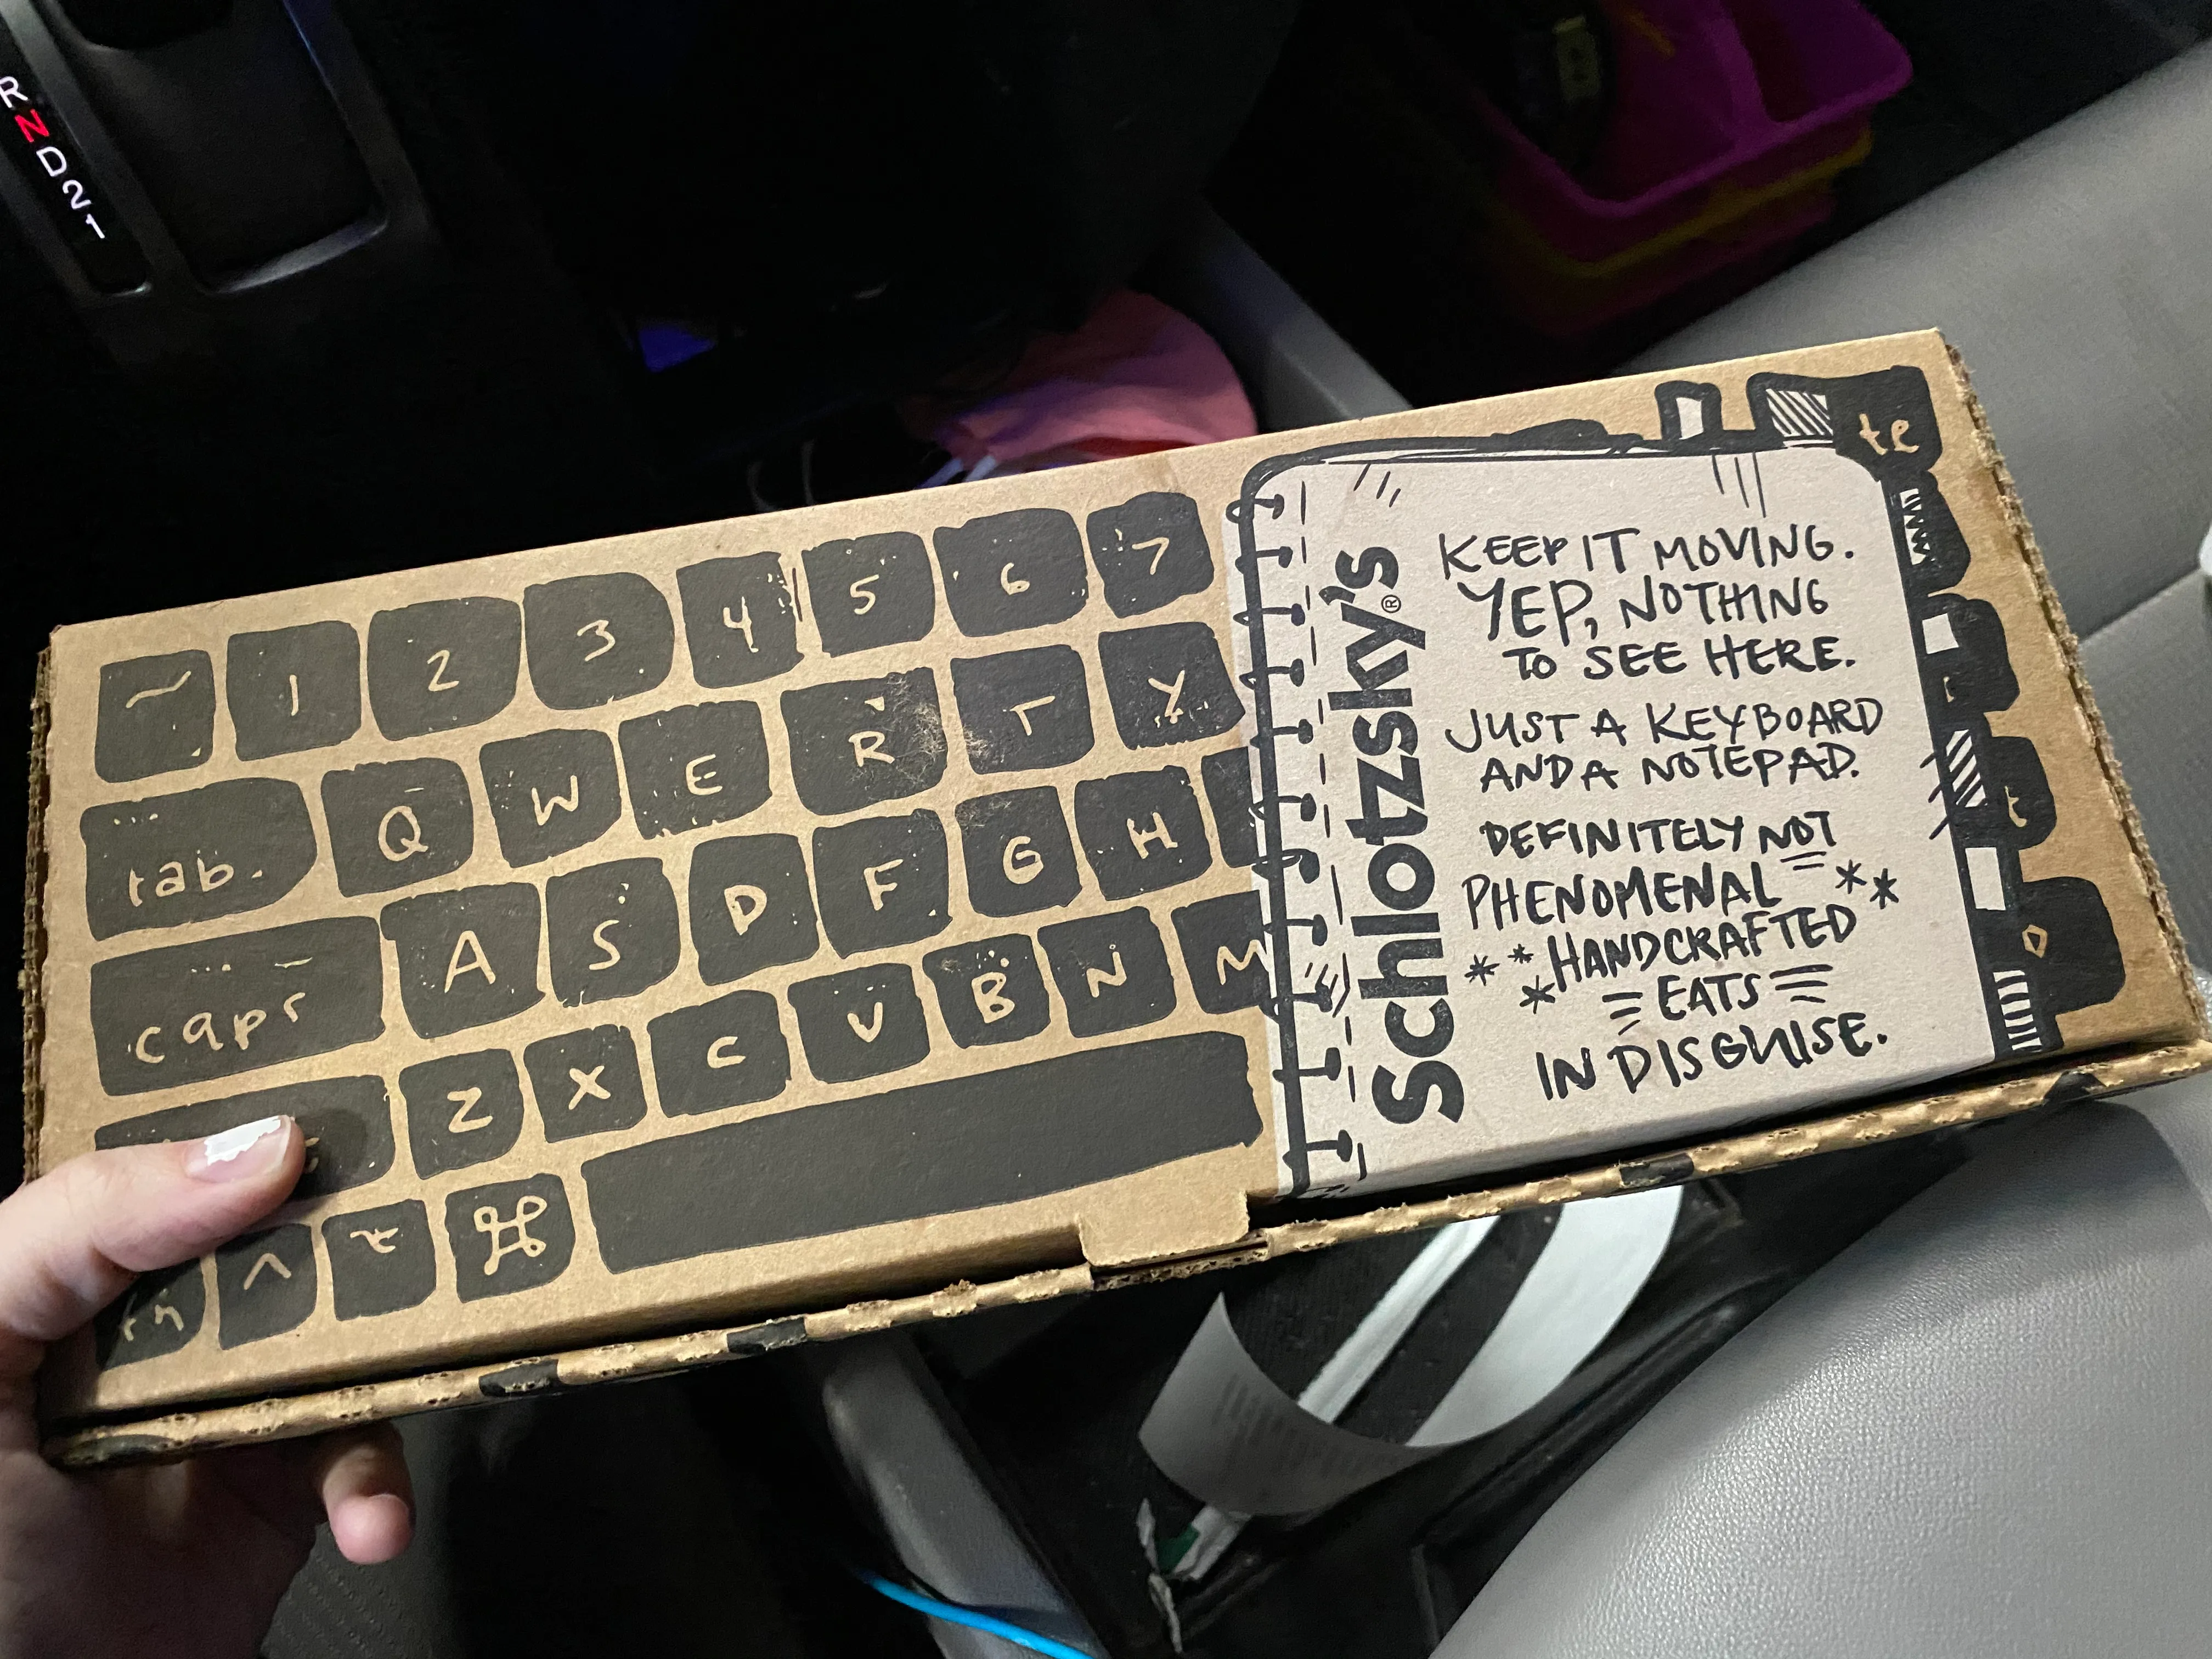 R
N
D
2
1
~ 1 2 3 4 5 6 7
tab. Q W E R T Y
caps A S D F G H
Z X C V B N M
fn ^ ⌥ ⌘
Schlotzsky's®
KEEP IT MOVING.
YEP, NOTHING
TO SEE HERE.
JUST A KEYBOARD
AND A NOTEPAD.
DEFINITELY NOT
PHENOMENAL **
** HANDCRAFTED
* EATS
IN DISGUISE.
te
t